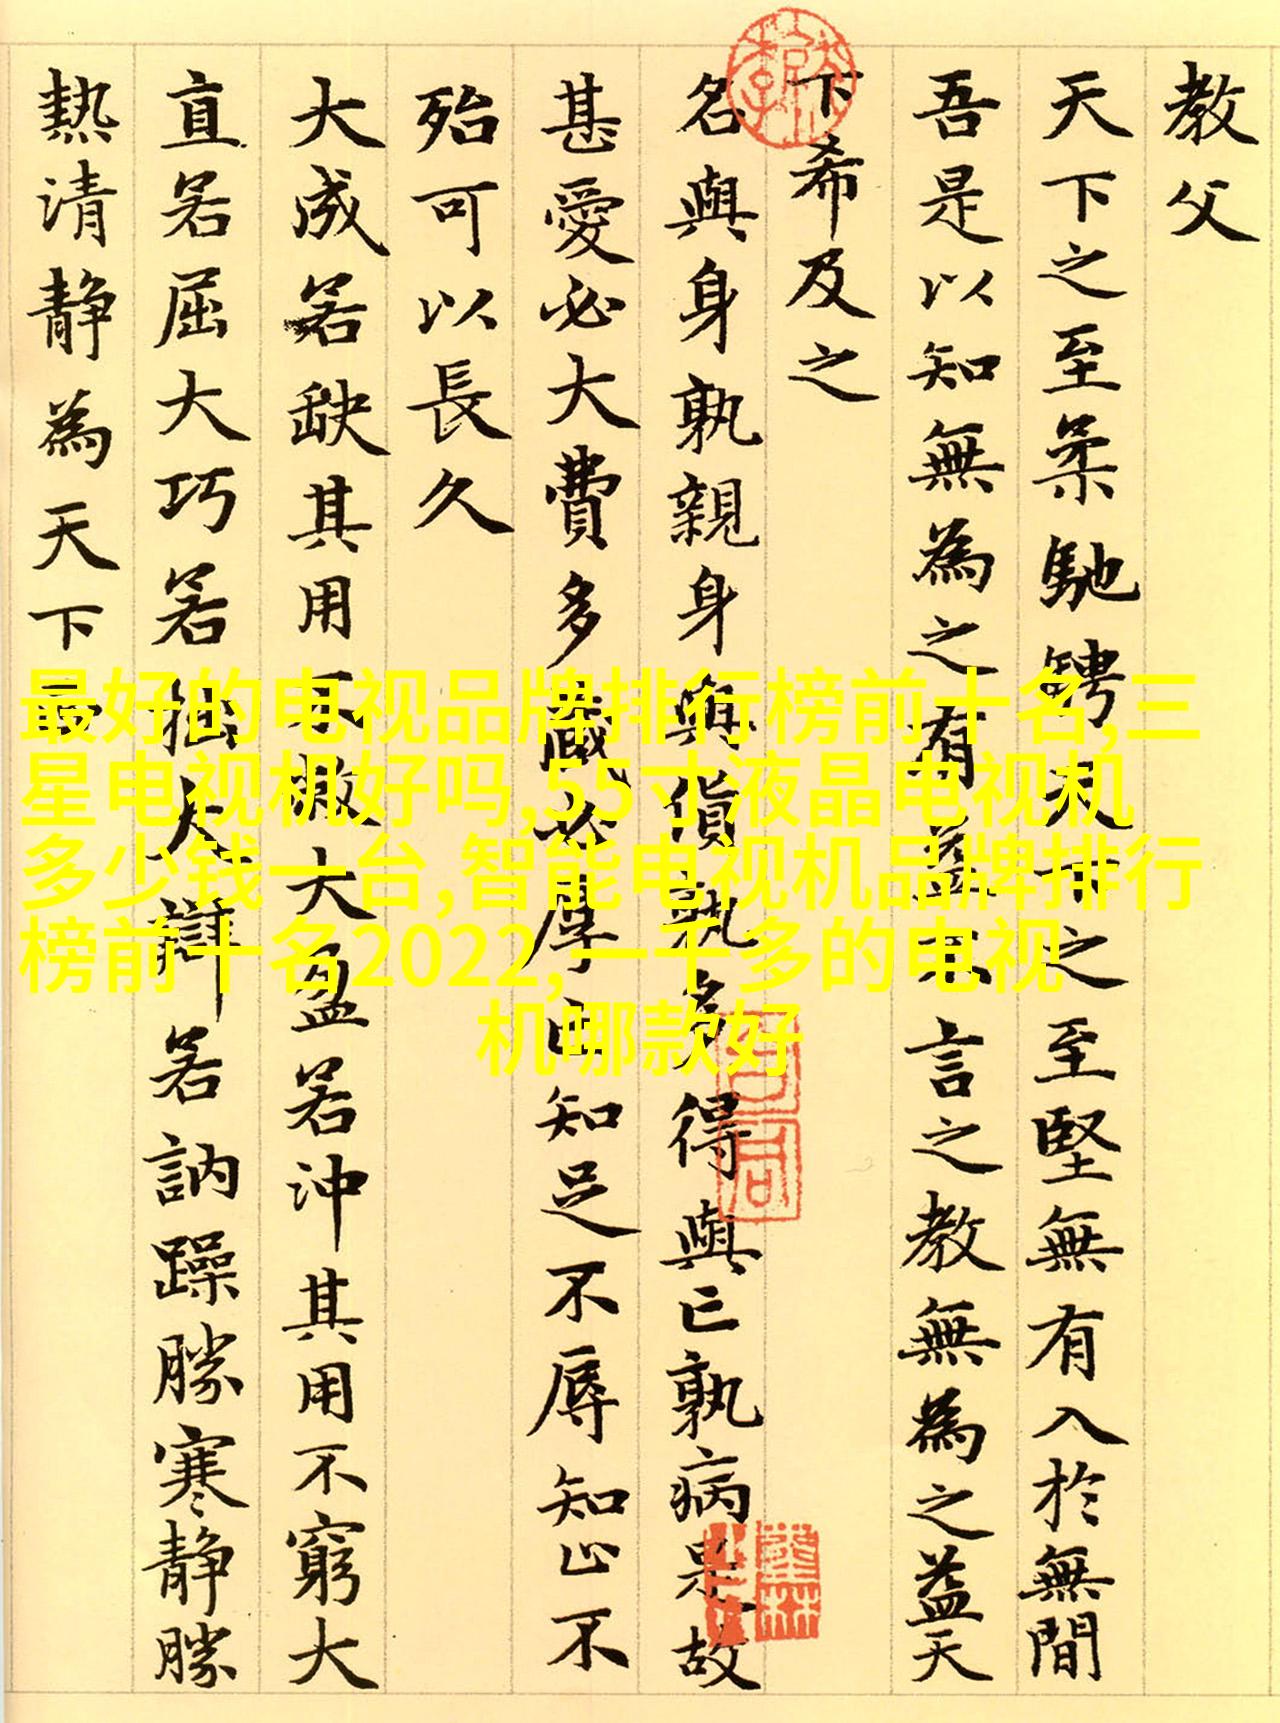 教父
天下之至柔馳騁天下之至堅無有入於無間
吾是以知無為之有益不言之教無為之益天
下希及之
名與身孰親身與貨孰多得與亡孰病是故
甚愛必大費多藏必厚亡知足不辱知止不
殆可以長久
大成若缺其用不敝大盈若沖其用不窮大
直若屈大巧若拙大辯若訥躁勝寒静勝
熱清静為天下正
最好的电视品牌排行榜前十名,三
星电视机好吗,55寸液晶电视机
多少钱一台,智能电视机品牌排行
榜前十名2022,一千多的电视
机哪款好